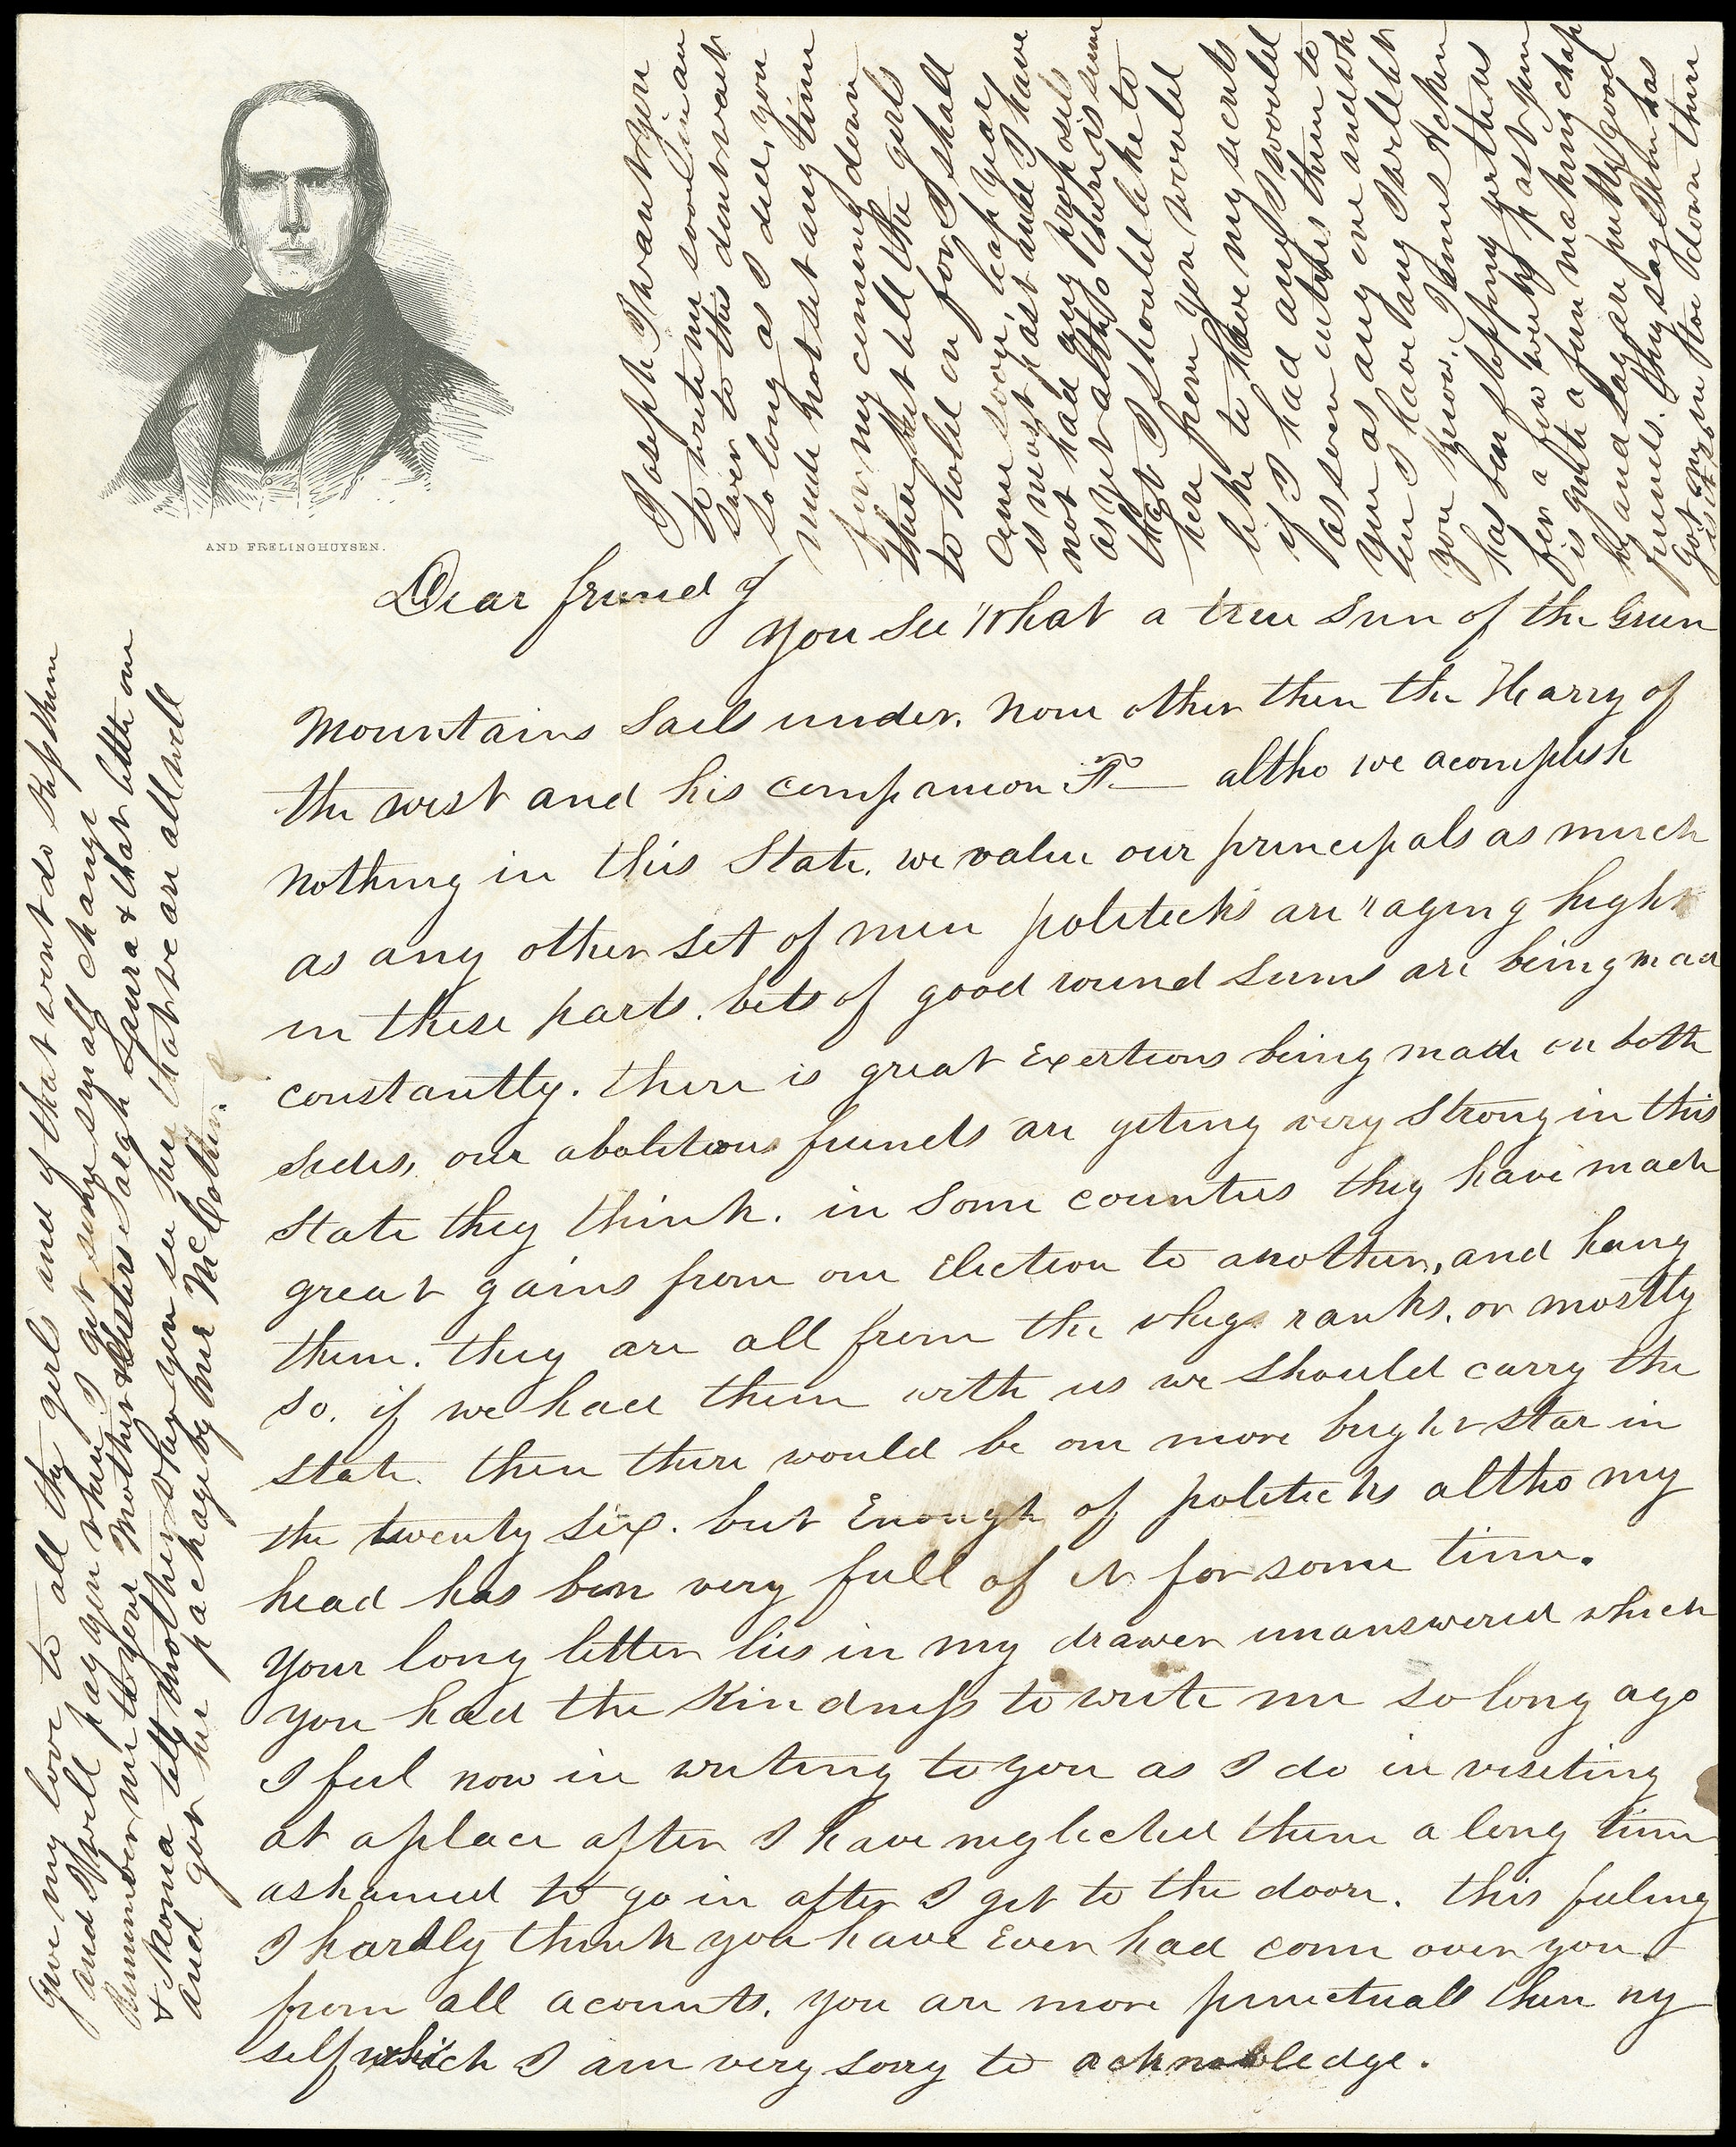 AND FRELINGHUYSEN.
Dear friend J
You See What a true Sun of the Green
Mountains Sails under. None other then the Harry of
the west and his companion F. altho we acomplish
nothing in this State. we value our principals as much
as any other set of men politicks are raging high
in these parts. bets of good round sums are being mad
constantly. there is great Exertions being made on both
sides, our abolitions friends are geting very Strong in this
State they think. in Some counties they have made
great gains from one Election to another, and hang
them. they are all from the whigs ranks. or mostly
so. if we had them with us we should carry the
state. then there would be one more bright star in
the twenty six. but Enough of politicks altho my
head has ben very full of it for some time.
Your long letter lies in my drawer unanswered which
you had the Kindness to write me so long ago
I feel now in writing to you as I do in visiting
at a place after I have neglected them a long time
ashamed to go in after I get to the door. this feeling
I hardly think you have Ever had come over you.
from all acounts. you are more punctuall then my
self which I am very sorry to acknowledge.
Joseph I want you
to write me soon in an
swer to this dont wait
so long as I did, you
must not set any time
for my coming down
there but tell the girls
to hold on for I shall
come soon, leap year
is most past and I have
not had any proposels
as yet altho there is some
that I should like to
here from you would
like to have my secrets
if I had any I would
as soon intrust them to
you as any one and wh
en I have any I will let
you know. James Acken
has ben stopping with us
for a few weeks past you
is quite a fun making chap
by and Lazy are pretty good
friends. they say them has
got me in tow down there
is it so
Give my love to all the girls and if that wont do Kiss them
and I will pay you when I get some small change
Remember me to your Mother & Sisters Sarah Laura & that little one
& Mona tell mother when you see her that we are all well
and got her package by Mr McCotter.